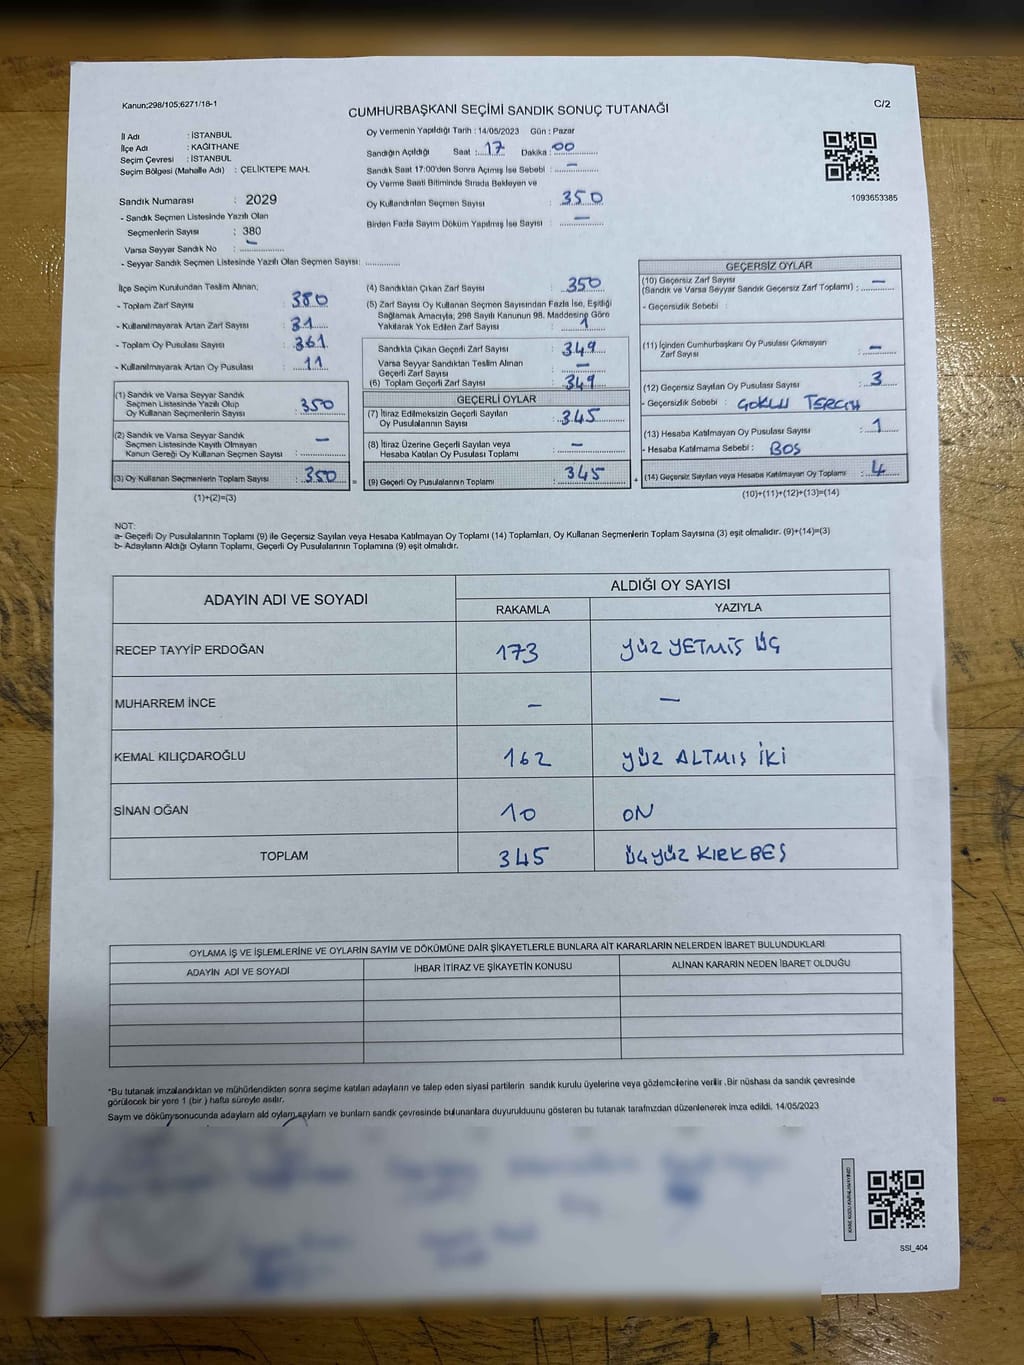 Kanun;298/105;6271/16-1
CUMHURBAŞKANI SEÇİMİ SANDIK SONUÇ TUTANAĞI
C/2
İl Adı : İSTANBUL
İlçe Adı : KAĞITHANE
Seçim Çevresi : İSTANBUL
Seçim Bölgesi (Mahalle Adı) : ÇELİKTEPE MAH.
Sandık Numarası : 2029
- Sandık Seçmen Listesinde Yazılı Olan
Seçmenlerin Sayısı : 380
Varsa Seyyar Sandık No : –
- Seyyar Sandık Seçmen Listesinde Yazılı Olan Seçmen Sayısı:
Oy Vermenin Yapıldığı Tarih : 14/05/2023 Gün : Pazar
Sandığın Açıldığı Saat : 17 Dakika : 00
Sandık Saat 17:00'den Sonra Açılmış İse Sebebi : –
Oy Verme Saati Bitiminde Sırada Bekleyen ve
Oy Kullandırılan Seçmen Sayısı : 350
Birden Fazla Sayım Döküm Yapılmış İse Sayısı : –
1093653385
İlçe Seçim Kurulundan Teslim Alınan;
- Toplam Zarf Sayısı : 380
- Kullanılmayarak Artan Zarf Sayısı : 31
- Toplam Oy Pusulası Sayısı : 361
- Kullanılmayarak Artan Oy Pusulası : 11
(1) Sandık ve Varsa Seyyar Sandık
Seçmen Listesinde Yazılı Olup
Oy Kullanan Seçmenlerin Sayısı : 350
(2) Sandık ve Varsa Seyyar Sandık
Seçmen Listesinde Kayıtlı Olmayan
Kanun Gereği Oy Kullanan Seçmen Sayısı : –
(3) Oy Kullanan Seçmenlerin Toplam Sayısı : 350
(1)+(2)=(3)
(4) Sandıktan Çıkan Zarf Sayısı : 350
(5) Zarf Sayısı Oy Kullanan Seçmen Sayısından Fazla İse, Eşitliği
Sağlamak Amacıyla; 298 Sayılı Kanunun 98. Maddesine Göre
Yakılarak Yok Edilen Zarf Sayısı : 1
Sandıkta Çıkan Geçerli Zarf Sayısı : 349
Varsa Seyyar Sandıktan Teslim Alınan
Geçerli Zarf Sayısı : –
(6) Toplam Geçerli Zarf Sayısı : 349
GEÇERLİ OYLAR
(7) İtiraz Edilmeksizin Geçerli Sayılan
Oy Pusulalarının Sayısı : 345
(8) İtiraz Üzerine Geçerli Sayılan veya
Hesaba Katılan Oy Pusulası Toplamı : –
(9) Geçerli Oy Pusulalarının Toplamı : 345
GEÇERSİZ OYLAR
(10) Geçersiz Zarf Sayısı
(Sandık ve Varsa Seyyar Sandık Geçersiz Zarf Toplamı) : –
- Geçersizlik Sebebi :
(11) İçinden Cumhurbaşkanı Oy Pusulası Çıkmayan
Zarf Sayısı : –
(12) Geçersiz Sayılan Oy Pusulası Sayısı : 3
- Geçersizlik Sebebi : ÇOKLU TERCİH
(13) Hesaba Katılmayan Oy Pusulası Sayısı : 1
- Hesaba Katılmama Sebebi : BOŞ
(14) Geçersiz Sayılan veya Hesaba Katılmayan Oy Toplamı : 4
(10)+(11)+(12)+(13)=(14)
NOT:
a- Geçerli Oy Pusulalarının Toplamı (9) ile Geçersiz Sayılan veya Hesaba Katılmayan Oy Toplamı (14) Toplamları, Oy Kullanan Seçmenlerin Toplam Sayısına (3) eşit olmalıdır. (9)+(14)=(3)
b- Adayların Aldığı Oyların Toplamı, Geçerli Oy Pusulalarının Toplamına (9) eşit olmalıdır.
ADAYIN ADI VE SOYADI
ALDIĞI OY SAYISI
RAKAMLA YAZIYLA
RECEP TAYYİP ERDOĞAN 173 YÜZ YETMİŞ ÜÇ
MUHARREM İNCE – –
KEMAL KILIÇDAROĞLU 162 YÜZ ALTMIŞ İKİ
SİNAN OĞAN 10 ON
TOPLAM 345 ÜÇYÜZ KIRKBEŞ
OYLAMA İŞ VE İŞLEMLERİNE VE OYLARIN SAYIM VE DÖKÜMÜNE DAİR ŞİKAYETLERLE BUNLARA AİT KARARLARIN NELERDEN İBARET BULUNDUKLARI
ADAYIN ADI VE SOYADI İHBAR İTİRAZ VE ŞİKAYETİN KONUSU ALINAN KARARIN NEDEN İBARET OLDUĞU
*Bu tutanak imzalandıktan ve mühürlendikten sonra seçime katılan adayların ve talep eden siyasi partilerin sandık kurulu üyelerine veya gözlemcilerine verilir. Bir nüshası da sandık çevresinde
görülecek bir yere 1 (bir ) hafta süreyle asılır.
Sayım ve döküm sonucunda adayların aldığı oyların sayılarını ve bunların sandık çevresinde bulunanlara duyurulduğunu gösteren bu tutanak tarafımızdan düzenlenerek imza edildi. 14/05/2023
SSI_404